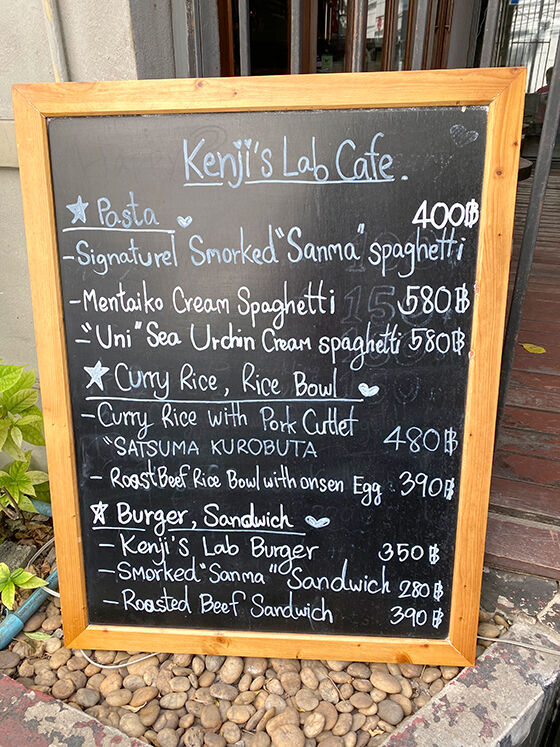 Kenji's Lab Cafe.
Pasta 400฿
- Signaturel Smorked "Sanma" spaghetti
- Mentaiko Cream Spaghetti 580฿
- "Uni" Sea Urchin Cream spaghetti 580฿
Curry Rice, Rice Bowl
- Curry Rice with Pork Cutlet 480฿
"SATSUMA KUROBUTA
- Roast Beef Rice Bowl with onsen Egg 390฿
Burger, Sandwich
- Kenji's Lab Burger 350฿
- Smorked "Sanma" Sandwich 280฿
- Roasted Beef Sandwich 390฿